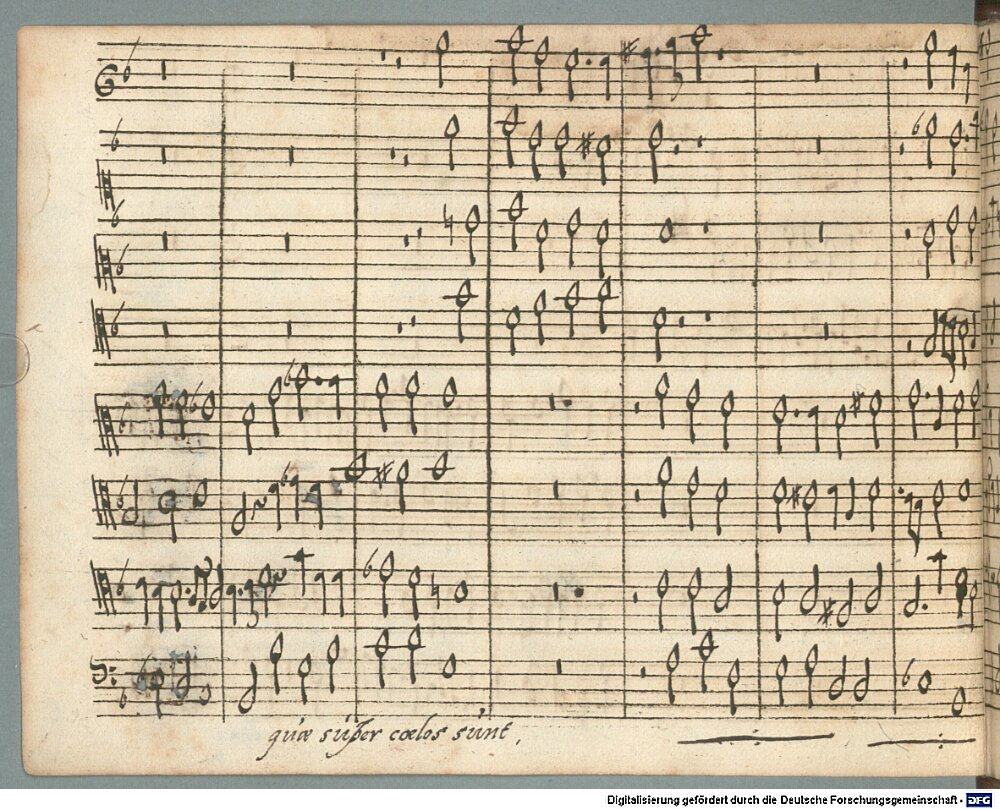 quæ super cœlos sunt,
Digitalisierung gefördert durch die Deutsche Forschungsgemeinschaft - DFG